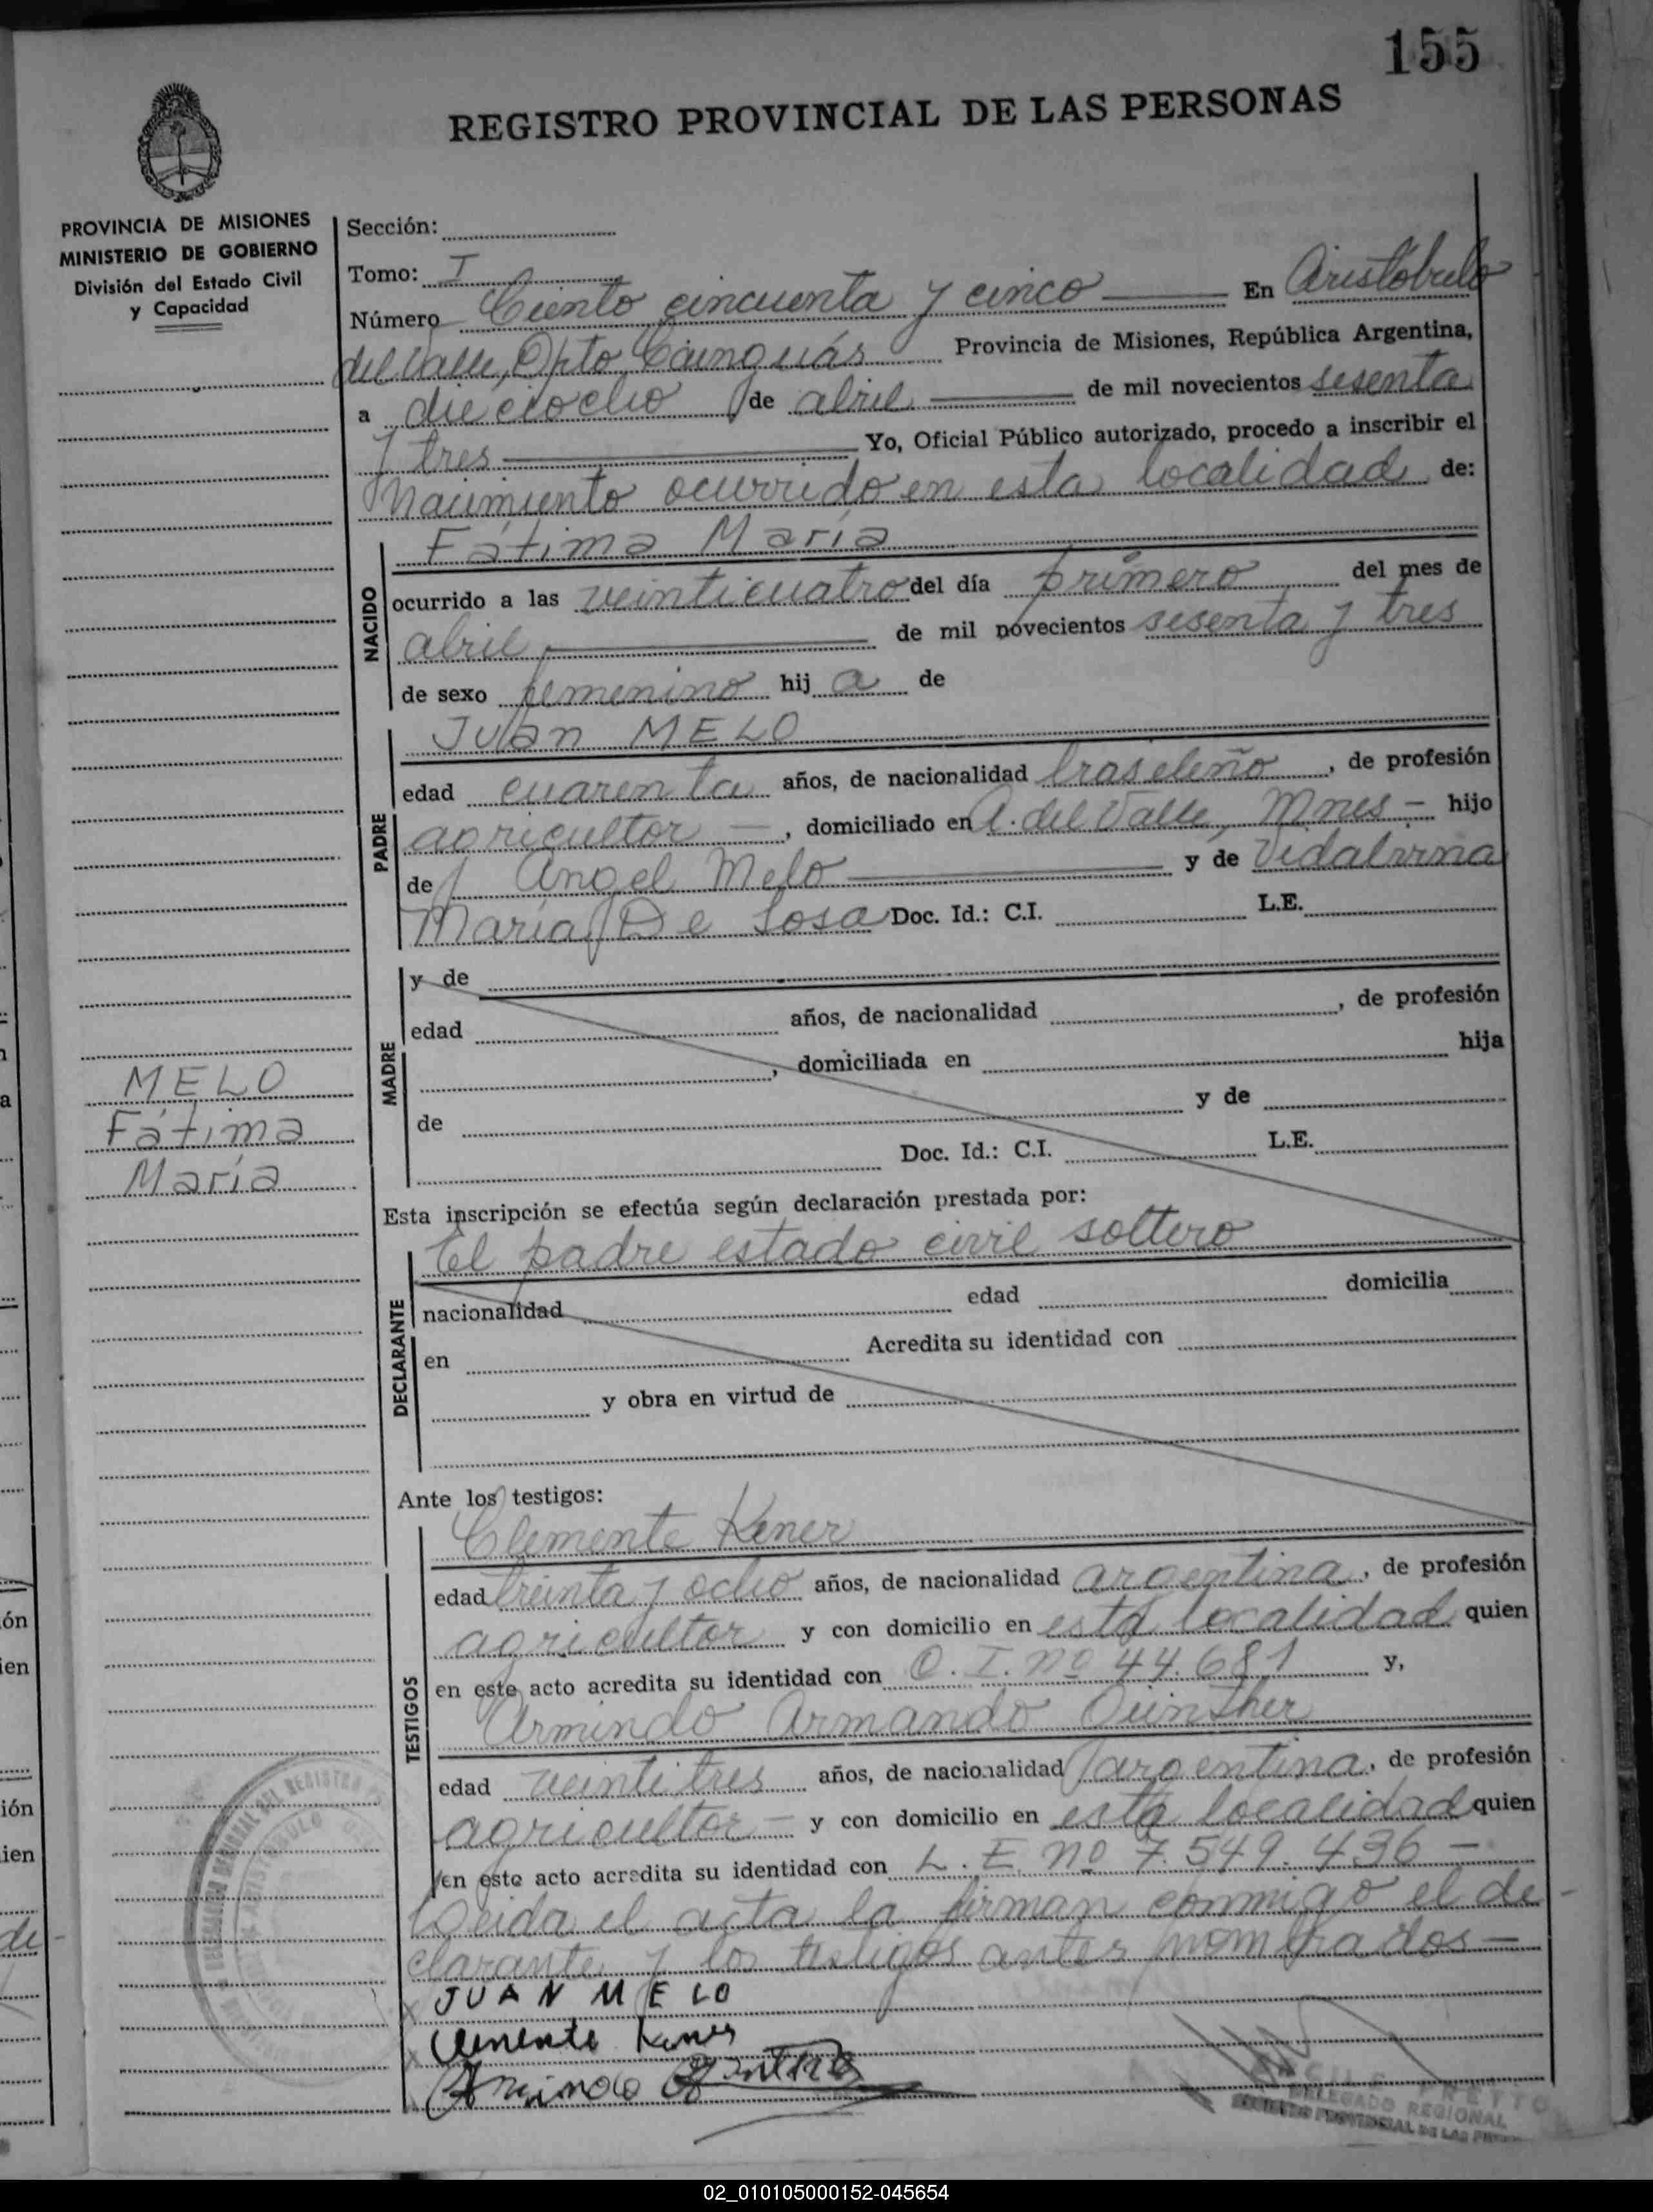 155
REGISTRO PROVINCIAL DE LAS PERSONAS
PROVINCIA DE MISIONES
MINISTERIO DE GOBIERNO
División del Estado Civil
y Capacidad
Sección:
Tomo: I
Número Ciento cincuenta y cinco En Aristobulo
del Valle, Dpto Cainguás Provincia de Misiones, República Argentina,
a dieciocho de abril de mil novecientos sesenta
y tres Yo, Oficial Público autorizado, procedo a inscribir el
Nacimiento ocurrido en esta localidad de:
NACIDO
Fátima María
ocurrido a las veinticuatro del día primero del mes de
abril de mil novecientos sesenta y tres
de sexo femenino hij a de
PADRE
Juan MELO
edad cuarenta años, de nacionalidad brasileño, de profesión
agricultor —, domiciliado en A. del Valle, Mnes — hijo
de Angel Melo y de Vidalvina
María De Sosa Doc. Id.: C.I. L.E.
MADRE
y de
edad años, de nacionalidad , de profesión
, domiciliada en hija
de y de
Doc. Id.: C.I. L.E.
MELO
Fátima
María
Esta inscripción se efectúa según declaración prestada por:
DECLARANTE
El padre estado civil soltero
nacionalidad edad domicilia
en Acredita su identidad con
y obra en virtud de
Ante los testigos:
TESTIGOS
Clemente Kener
edad treinta y ocho años, de nacionalidad argentina, de profesión
agricultor y con domicilio en esta localidad quien
en este acto acredita su identidad con C. I. nº 44.681 y,
Armindo Armando Günther
edad veintitres años, de nacionalidad argentina, de profesión
agricultor — y con domicilio en esta localidad quien
en este acto acredita su identidad con L. E. nº 7.549.436 —
Leida el acta la firman conmigo el de
clarante y los testigos antes nombrados —
JUAN MELO
Clemente Kener
Armindo Günther
DELEGADO REGIONAL
REGISTRO PROVINCIAL DE LAS
02_010105000152-045654